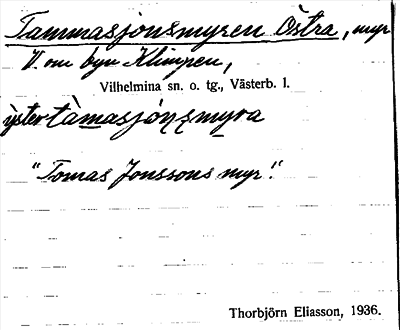 Tammasjonsmyren Östra, myr
V. om byn Klimpen,
Vilhelmina sn. o. tg., Västerb. l.
tàmasjón̥s̥myra
"Tomas Jonssons myr".
Thorbjörn Eliasson, 1936.